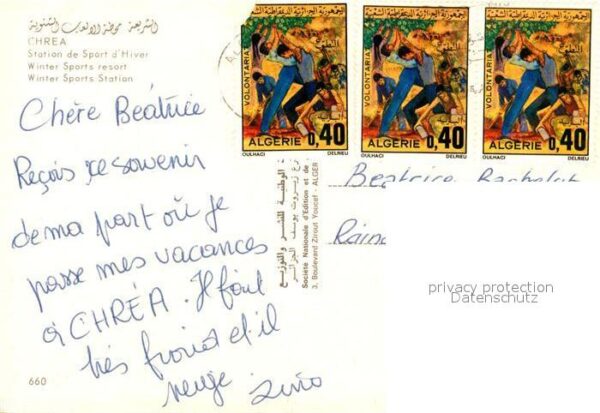 الشريعة محطة الالعاب الشتوية
CHREA
Station de Sport d'Hiver
Winter Sports resort
Winter Sports Station
Chère Béatrice
Reçois ce souvenir
de ma part où je
passe mes vacances
à CHRÉA. Il fait
très froid et il
neige
660
VOLONTARIAT
ALGERIE 0,40
OULHACI DELRIEU
VOLONTARIAT
ALGERIE 0,40
OULHACI DELRIEU
VOLONTARIAT
ALGERIE 0,40
OULHACI DELRIEU
الوطنية للنشر والتوزيع
زيروت يوسف الجزائر
Société Nationale d'Edition et de
3, Boulevard Zirout Youcef - ALGER
Beatrice
privacy protection
Datenschutz